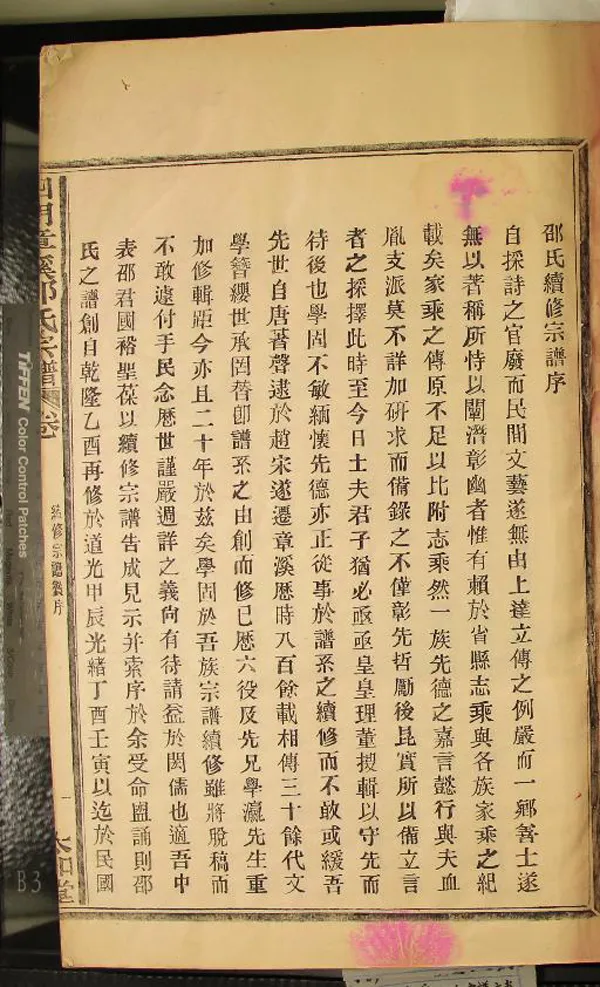 邵氏續修宗譜序
自採詩之官廢而民間文藝遂無由上達立傳之例嚴而一鄉善士遂
無以著稱所恃以闡潛彰幽者惟有賴於省縣志乘與各族家乘之紀
載矣家乘之傳原不足以比附志乘然一族先德之嘉言懿行與夫血
胤支派莫不詳加研求而備錄之不僅彰先哲勵後昆實所以備立言
者之採擇此時至今日士夫君子猶必亟亟皇皇理董搜輯以守先而
待後也學固不敏緬懷先德亦正從事於譜系之續修而不敢或緩吾
先世自唐著聲逮於趙宋遂遷章溪歷時八百餘載相傳三十餘代文
學簪纓世承罔替卽譜系之由創而修已歷六役及先兄學瀛先生重
加修輯距今亦且二十年於茲矣學固於吾族宗譜續修雖將脫稿而
不敢遽付手民念歷世謹嚴週詳之義尙有待請益於閎儒也適吾中
表邵君國裕聖葆以續修宗譜告成見示并索序於余受命盥誦則邵
氏之譜創自乾隆乙酉再修於道光甲辰光緒丁酉壬寅以迄於民國
四明章溪邵氏宗譜 卷
續修宗譜序
一
六和堂
TIFFEN Color Control Patches
B3